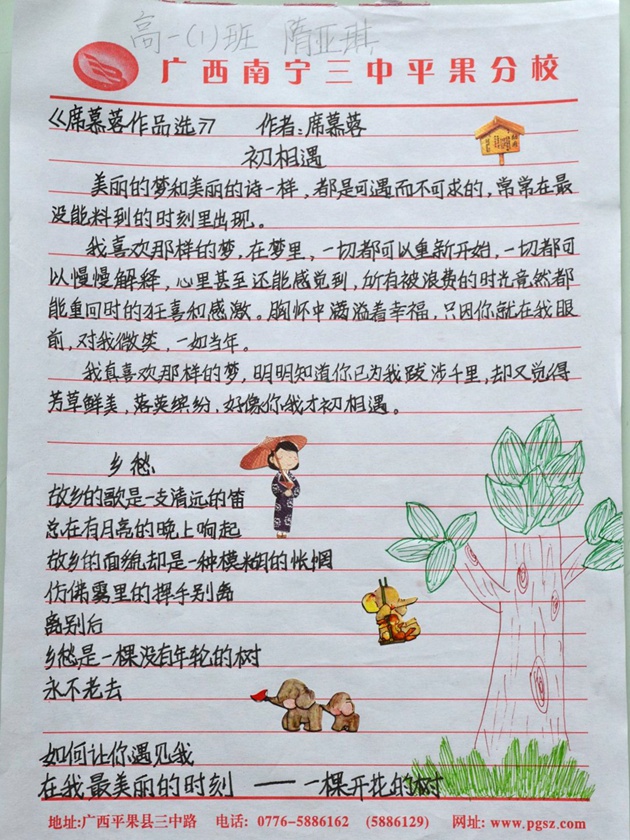 高一(1)班 隋亚琪
广西南宁三中平果分校
《席慕蓉作品选》 作者:席慕蓉
初相遇
美丽的梦和美丽的诗一样,都是可遇而不可求的,常常在最
没能料到的时刻里出现。
我喜欢那样的梦,在梦里,一切都可以重新开始,一切都可
以慢慢解释,心里甚至还能感觉到,所有被浪费的时光竟然都
能重回时的狂喜和感激。胸怀中满溢着幸福,只因你就在我眼
前,对我微笑,一如当年。
我真喜欢那样的梦,明明知道你已为我跋涉千里,却又觉得
芳草鲜美,落英缤纷,好像你我才初相遇。
乡愁
故乡的歌是一支清远的笛
总在有月亮的晚上响起
故乡的面貌却是一种模糊的怅惘
仿佛雾里的挥手别离
离别后
乡愁是一棵没有年轮的树
永不老去
如何让你遇见我
在我最美丽的时刻 —— 一棵开花的树
地址:广西平果县三中路 电话: 0776-5886162 (5886129) 网址: www.pgsz.com